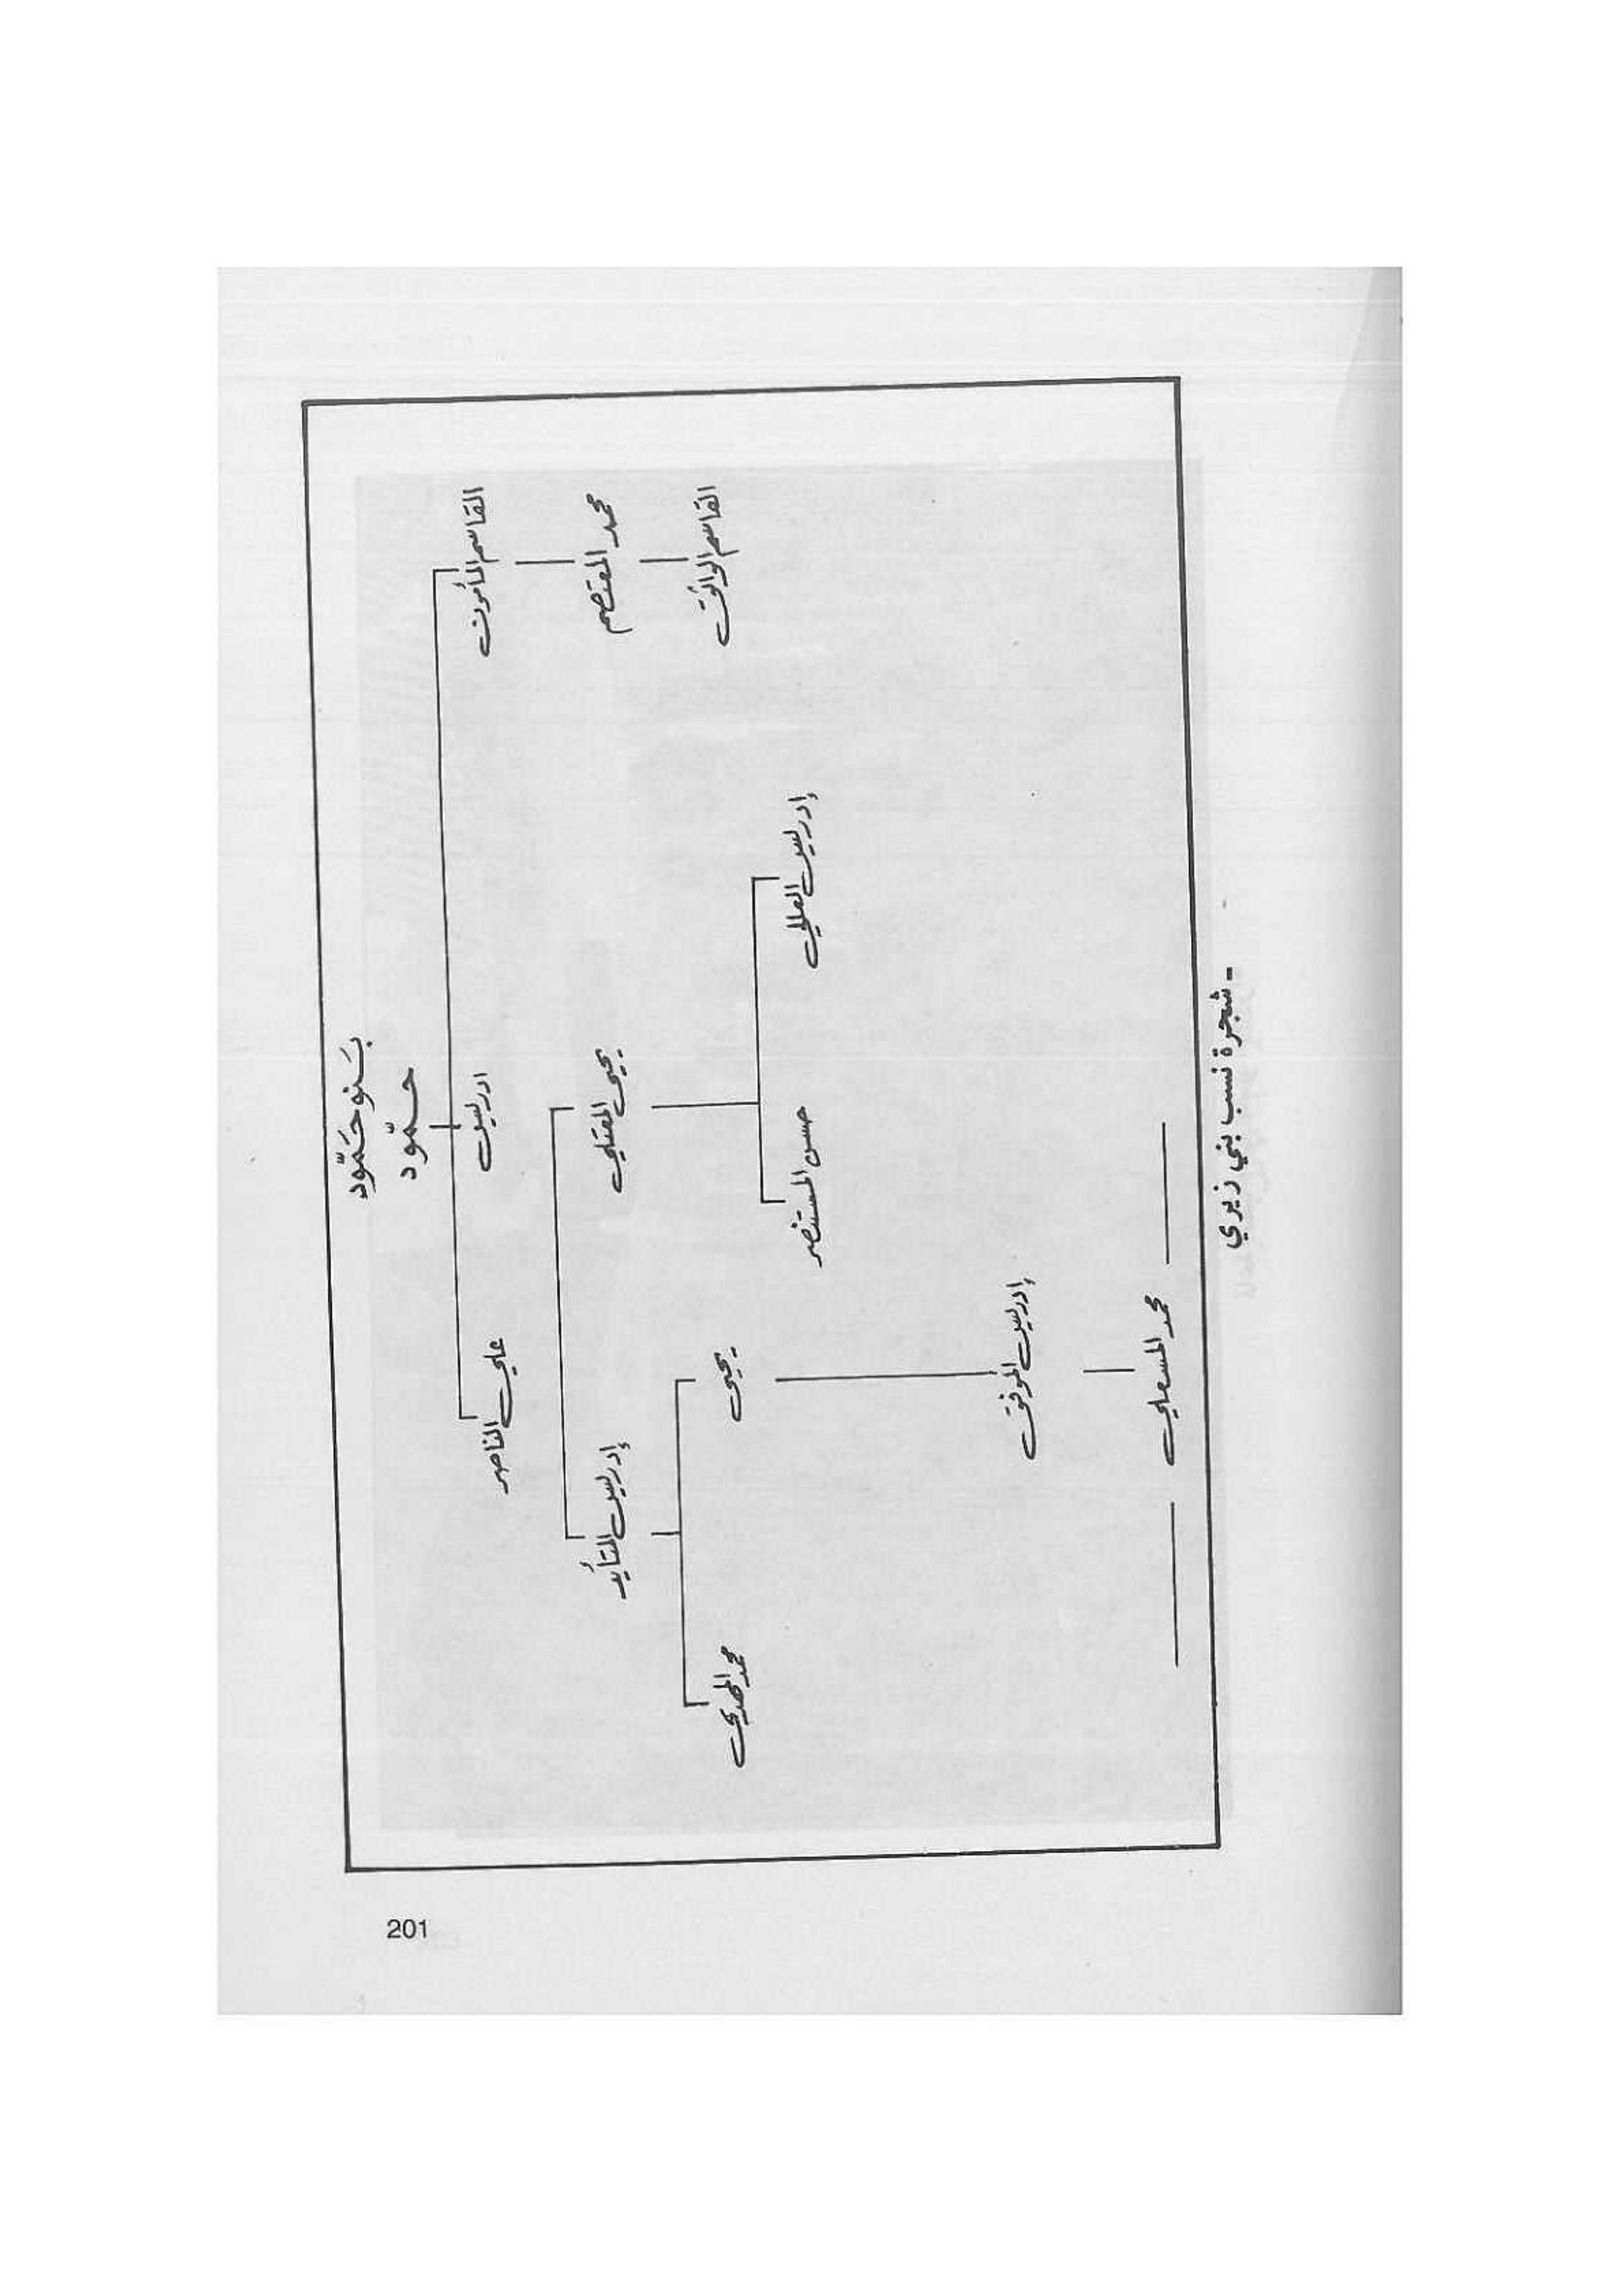 بَنو حَمّود
حـمّود
القاسم المأمون
ادريس
علي الناصر
محمد المعتصم
يحيى المعتلي
إدريس المتأيد
القاسم الواثق
يحيى
محمد المهدي
إدريس العالي
حسن المستنصر
إدريس الموفق
محمد المستعلي
- شجرة نسب بني زيري -
201